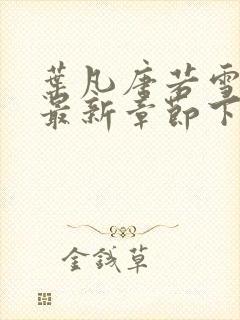 葉凡唐若雪
最新章節下
金錢草